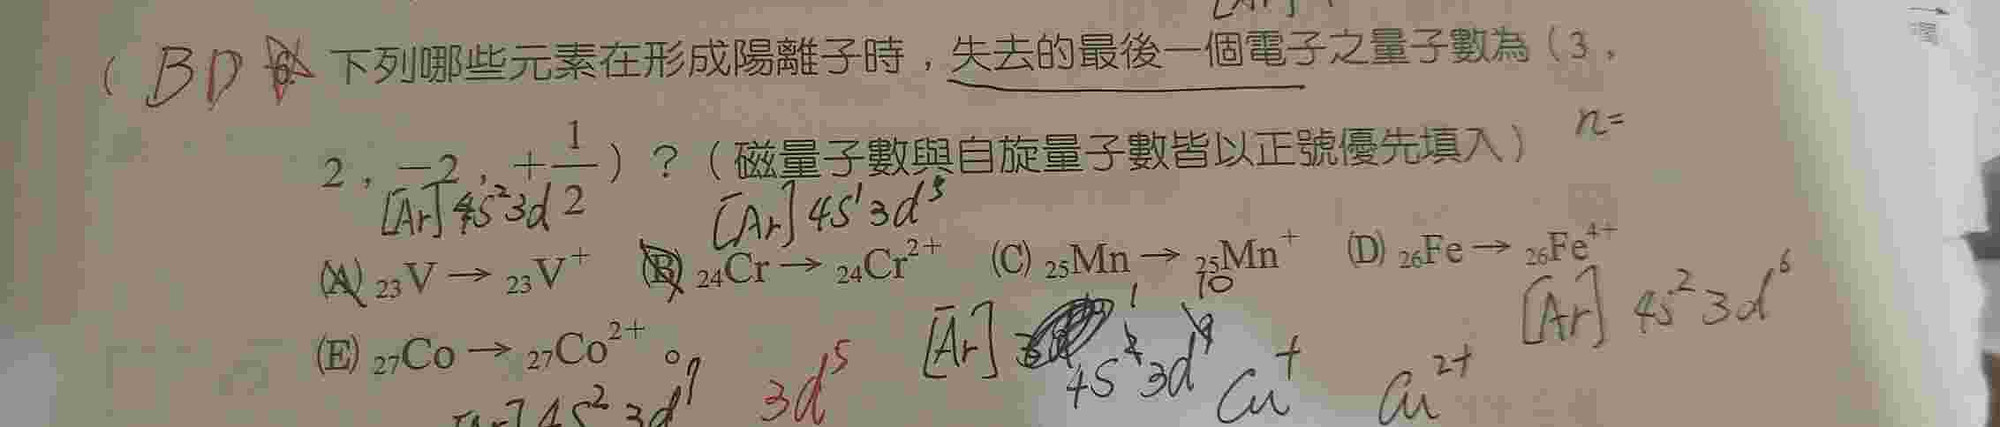 ( BD 下列哪些元素在形成陽離子時，失去的最後一個電子之量子數為（3，
2，−2，+1/2）？（磁量子數與自旋量子數皆以正號優先填入） n=
[Ar] 4s² 3d [Ar] 4s¹ 3d⁵
(A) ₂₃V → ₂₃V⁺ (B) ₂₄Cr → ₂₄Cr²⁺ (C) ₂₅Mn → ₂₅Mn⁺ (D) ₂₆Fe → ₂₆Fe⁴⁺
10 [Ar] 4s² 3d⁶
(E) ₂₇Co → ₂₇Co²⁺ 。
4s² 3d⁷ 3d⁵ [Ar] 4s 3d Cu⁺ Cu²⁺